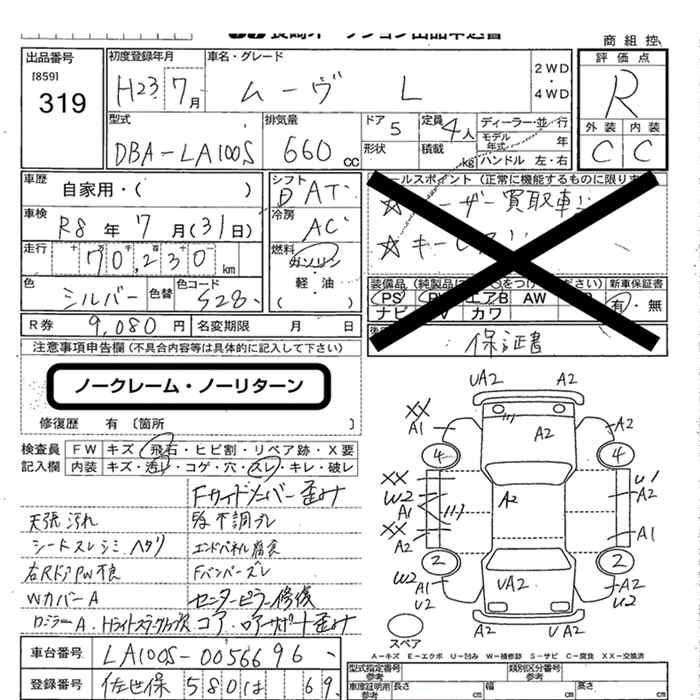 商組控
出品番号
[859]
319
初度登録年月
H23 7月
車名・グレード
ムーヴ L
2WD・4WD
評価点
R
外装 内装
C C
型式
DBA-LA100S
排気量
660cc
ドア
5
定員
4人
形状
積載
kg
ディーラー・並行
モデル年式 年
ハンドル 左・右
車歴
自家用・( )
シフト
AT
車検
R8年7月(31日)
冷房
AC
走行
70,230km
燃料
ガソリン・軽油
( )
色
シルバー
色替
色コード
S28
R券 9,080円
名変期限 月 日
装備品
新車保証書
PS エアB AW
ナビ カワ
有・無
保証書
買取車
注意事項申告欄(不具合内容等は具体的に記入して下さい)
ノークレーム・ノーリターン
修復歴 有〔箇所 〕
検査員記入欄
FW キズ・飛石・ヒビ割・リペア跡・X要
内装 キズ・汚レ・コゲ・穴・スレ・キレ・破レ
Fサイドメンバー歪み
天張汚れ
シートスレシミヘタリ
エンドパネル腐食
右RドアPW不良
Fバンパーズレ
WカバーA
センターピラー修復
UA2 A2
XX A1 A2 A2
4 4
XX W2 A1 A2 U1 A2
XX A2 A1
2 2
W2 A1 U2 UA2 A2 U2
A2 UA2
スペア
A－キズ E－エクボ U－凹み W－補修跡 S－サビ C－腐食 XX－交換済
車台番号
LA100S-0056696
登録番号
佐世保 580 は 69
型式指定番号
参考
類別区分番号
参考
車庫証明用
参考
長さ cm
幅 cm
高さ cm